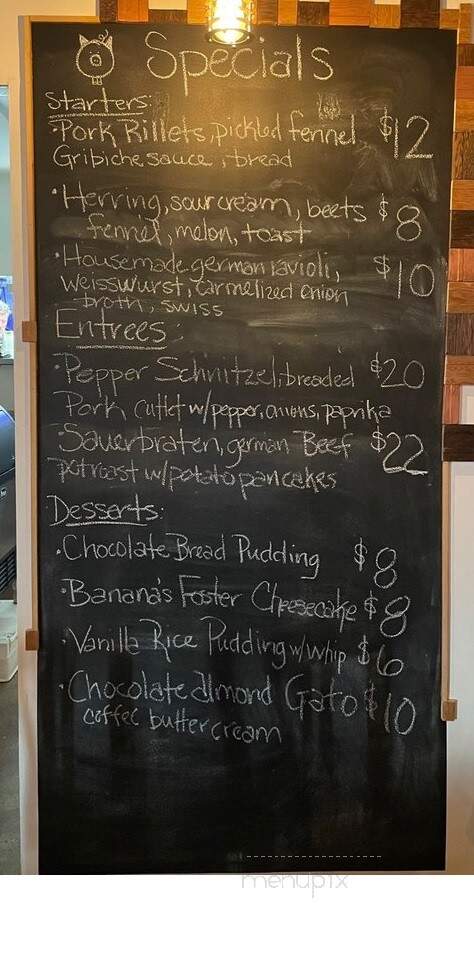 Specials
Starters:
·Pork Rillets, pickled fennel $12
Gribiche sauce, bread
·Herring, sour cream, beets $8
fennel, melon, toast
·Housemade german ravioli, $10
weisswurst, carmelized onion
broth, swiss
Entrees:
·Pepper Schnitzel, breaded $20
Pork cutlet w/pepper, onions, paprika
·Sauerbraten, german Beef $22
potroast w/potato pancakes
Desserts:
·Chocolate Bread Pudding $8
·Banana's Foster Cheesecake $8
·Vanilla Rice Pudding w/whip $6
·Chocolate almond Gato $10
coffee buttercream
menupix